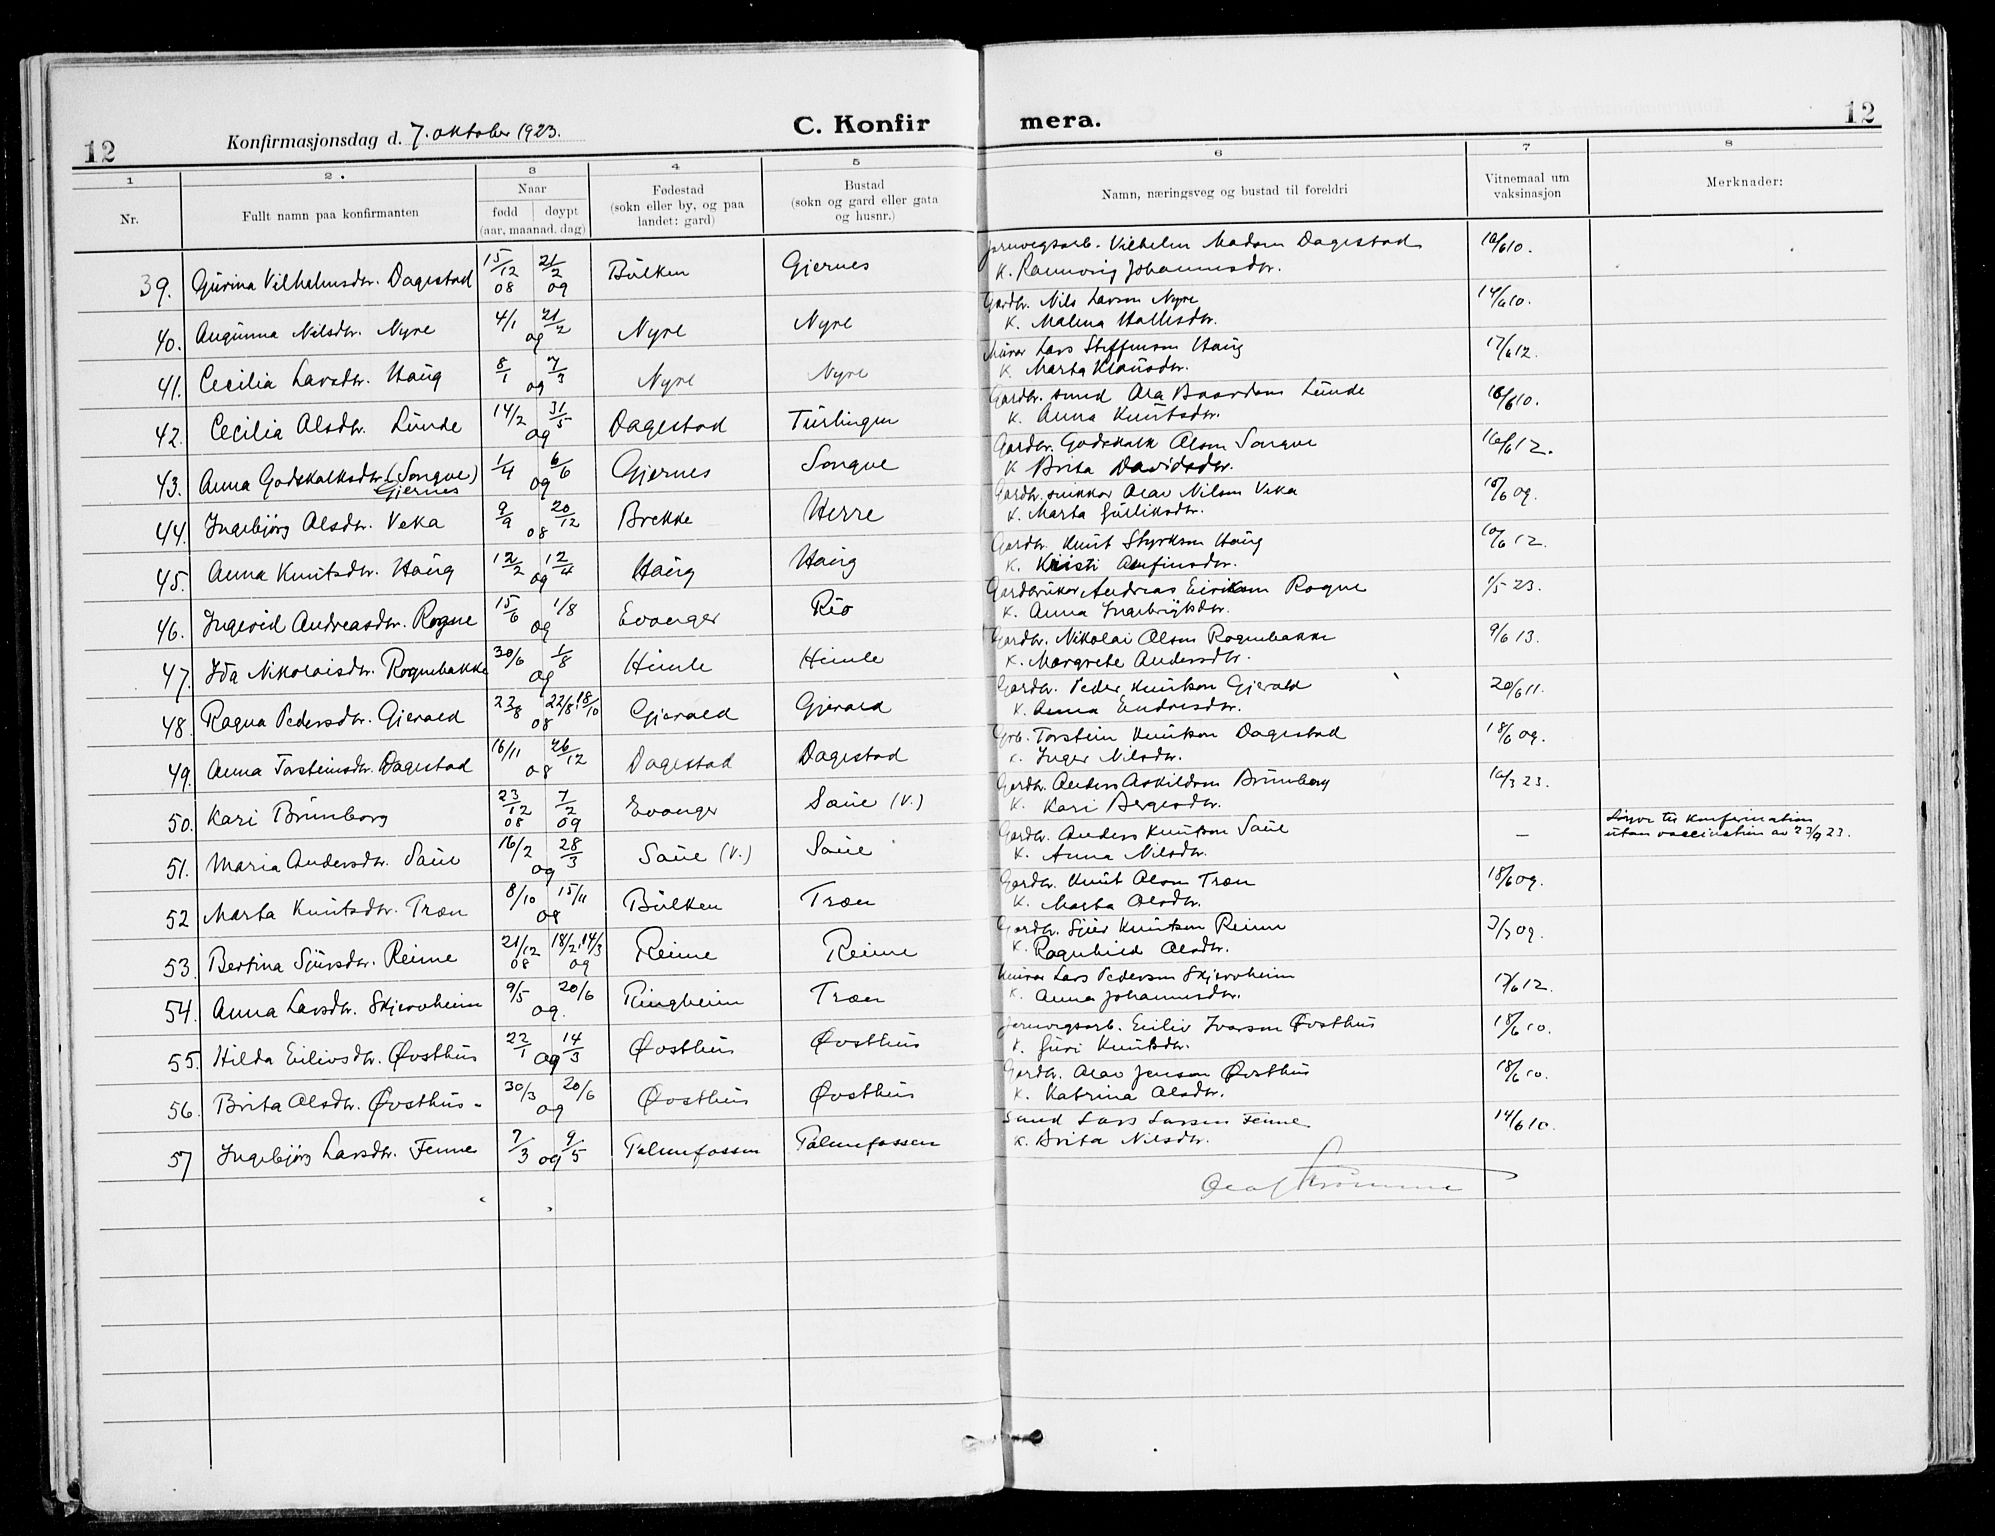 12 Konfirmasjonsdag d. 7. oktober 1923. C. Konfir mera. 12
1 2. 3 4 5 6 7 8
Nr. Fullt namn paa konfirmanten Naar fødd døypt (aar, maanad, dag) Fødestad (sokn eller by, og paa landet: gard) Bustad (sokn og gard eller gata og husnr.) Namn, næringsveg og bustad til foreldri Vitnemaal um vaksinasjon Merknader:
39. Gurina Vilhelmsdtr. Dagestad 15/12 08 21/2 09 Bulken Gjernes Jernvegsarb. Vilhelm Madsen Dagestad
K. Rannveig Johannesdtr. 16/6 10.
40. Angunna Nilsdtr. Nyre 4/1 21/2 09 Nyre Nyre Gardbr. Nils Larsen Nyre 14/6 10.
K. Malena Hallesdtr.
41. Cecilia Larsdtr. Haug 8/1 7/3 09 Nyre Nyre Murar Lars Steffenson Haug 17/6 12.
K. Marta Klausdtr.
42. Cecilia Olsdtr. Lunde 14/2 31/5 09 Dagestad Turlingen Gardbr. smed Ola Baardson Lunde 16/6 10.
K. Anna Knutsdtr.
43. Anna Godskalksdtr. (Songve) Gjernes 1/4 6/6 09 Gjernes Songve Gardbr. Godskalk Olson Songve 16/6 12.
K Brita Davidsdtr.
44. Ingebjørg Olsdtr. Veka 9/9 20/12 08 Brekke Herre Gardbr. snikkar Olav Nilson Veka 15/6 09.
K. Marta Gulliksdtr.
45. Anna Knutsdtr. Haug 12/2 12/4 09 Haug Haug Gardbr. Knut Styrkson Haug 10/6 12.
K. Kristi Arnfinsdtr.
46. Ingerid Andreasdtr. Rogne 15/6 1/8 09 Evanger Rio Gardbrukar Andreas Eirikson Rogne 1/5 23.
K. Anna Ingebrigtsdtr.
47. Ida Nikolaisdtr. Rognebakke 30/6 1/8 09 Himle Himle Gardbr. Nikolai Olson Rognebakke 9/6 13.
K. Margrete Andersdtr.
48. Ragna Pedersdtr. Gjerald 22/8 22/8, 18/10 08 Gjerald Gjerald Gardbr. Peder Knutson Gjerald 20/6 11.
K. Anna Endresdtr.
49. Anna Torsteinsdtr. Dagestad 16/11 26/12 08 Dagestad Dagestad Grb. Torstein Knutson Dagestad 18/6 09.
K. Inger Nilsdtr.
50. Kari Brunborg 23/12 08 7/2 09 Evanger Saue (V.) Gardbr. Anders Askildson Brunborg 16/3 23.
K. Kari Bergesdtr.
51. Maria Andersdtr. Saue 16/2 28/3 09 Saue (V.) Saue Gardbr. Anders Knutson Saue — Løyve til konfirmation
K. Anna Nilsdtr. utan vaccination av 23/9 23.
52 Marta Knutsdtr. Træn 8/10 15/11 08 Bulken Træn Gardbr. Knut Olson Træn 18/6 09.
K. Marta Olsdtr.
53. Bertina Sjursdtr. Reime 21/12 08 18/2, 14/3 09 Reime Reime Gardbr. Sjur Knutson Reime 3/7 09.
K. Ragnhild Olsdtr.
54. Anna Larsdtr. Skjervheim 9/5 20/6 09. Ringheim Træn Murar Lars Pederson Skjervheim 17/6 12.
K. Anna Johannesdtr.
55. Hilda Eilivsdtr. Øvsthus 22/1 14/3 09 Øvsthus Øvsthus Jernvegsarb. Eiliv Ivarson Øvsthus 18/6 10.
K. Guri Knutsdtr.
56. Brita Olsdtr. Øvsthus. 30/3 20/6 09 Øvsthus Øvsthus Gardbr. Olav Jenson Øvsthus 18/6 10.
K. Katrina Olsdtr.
57 Ingebjørg Larsdtr. Fenne 7/3 9/5 09 Palmafossen Palmafossen Smed Lars Larsen Fenne 14/6 10.
K. Brita Nilsdtr.
Olaf Strømme